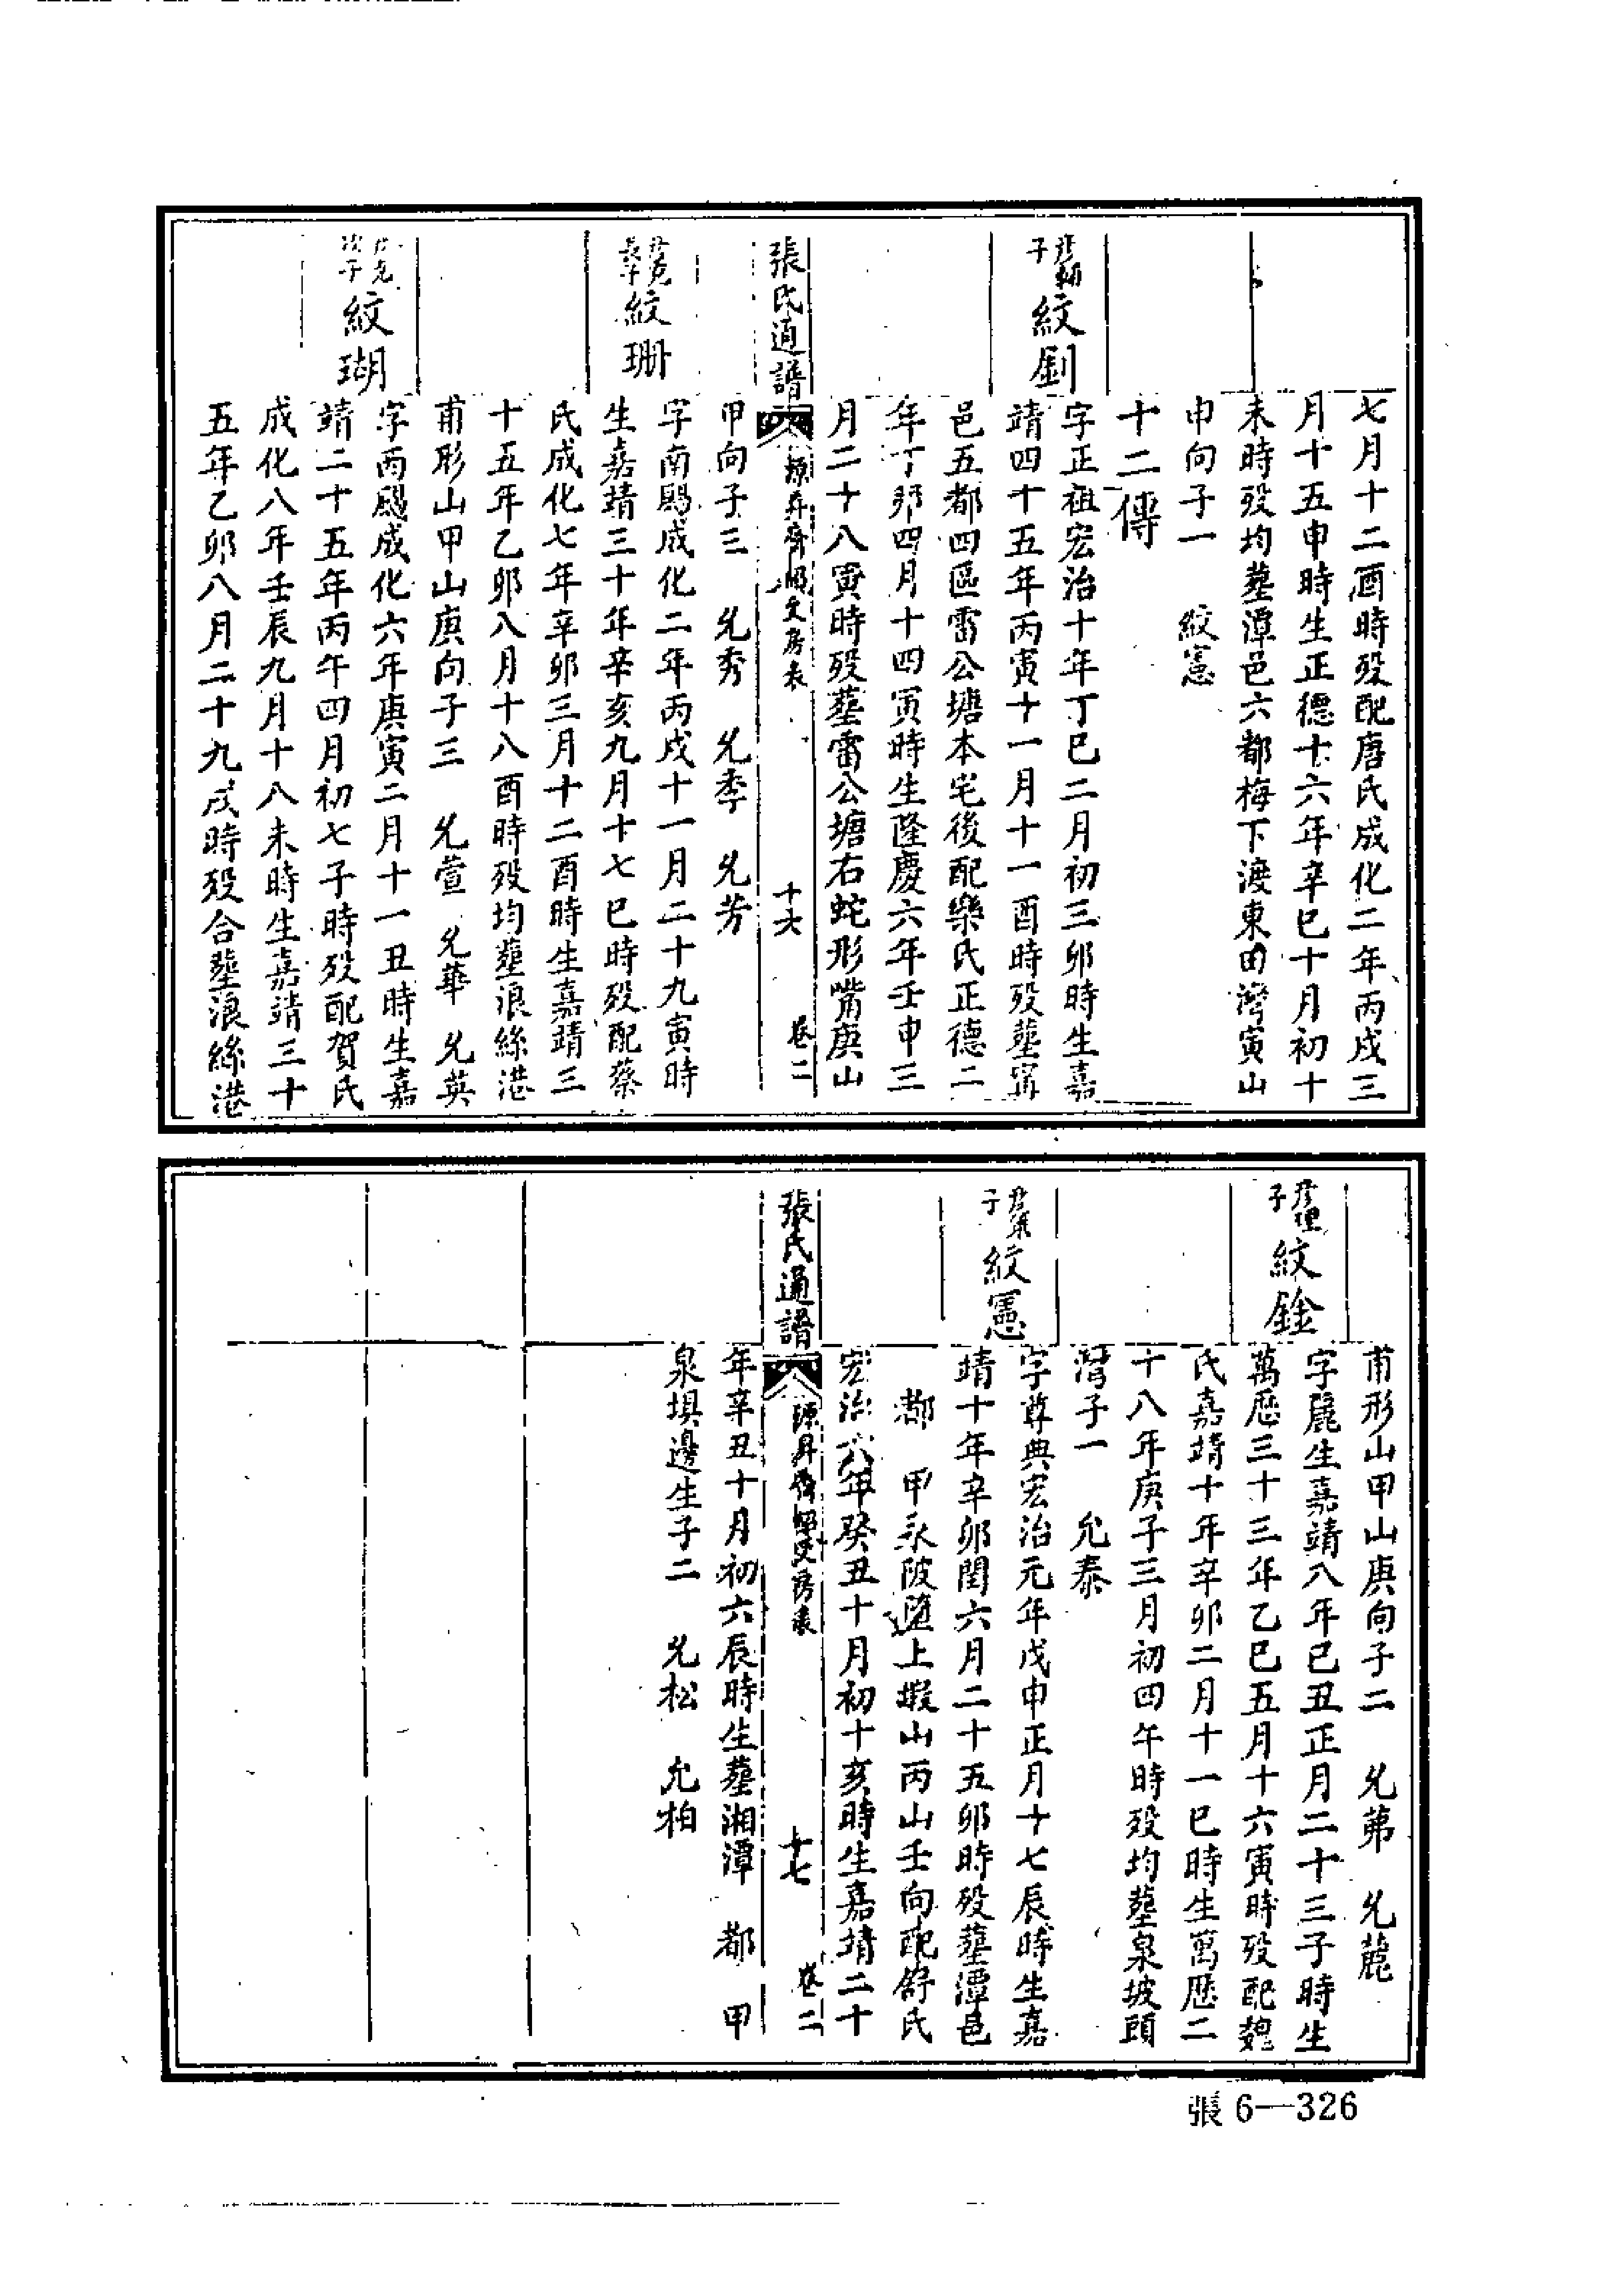 七月十二酉時歿配唐氏成化二年丙戌三
月十五申時生正德十六年辛巳十月初十
未時歿均塟潭邑六都梅下渡東田灣寅山
申向子一　紋憲
十二傳
子
紋釗
字正祖宏治十年丁巳二月初三卯時生嘉
靖四十五年丙寅十一月十一酉時歿塟甯
邑五都四區雷公塘本宅後配樂氏正德二
年丁卯四月十四寅時生隆慶六年壬申三
月二十八寅時歿塟雷公塘右蛇形嘴庚山
張氏通譜
十六　卷二
甲向子三　允秀　允季　允芳
長子
紋珊
字南賜成化二年丙戌十一月二十九寅時
生嘉靖三十年辛亥九月十七巳時歿配蔡
氏成化七年辛卯三月十二酉時生嘉靖三
十五年乙卯八月十八酉時歿均塟浪絲港
甫形山甲山庚向子三　允萱　允華　允英
次子
紋瑚
字丙賜成化六年庚寅二月十一丑時生嘉
靖二十五年丙午四月初七子時歿配賀氏
成化八年壬辰九月十八未時生嘉靖三十
五年乙卯八月二十九戌時歿合塟浪絲港
甫形山甲山庚向子二　允第　允麓
彦理
子
紋銓
字麗生嘉靖八年己丑正月二十三子時生
萬歷三十三年乙巳五月十六寅時歿配魏
氏嘉靖十年辛卯二月十一巳時生萬歷二
十八年庚子三月初四午時歿均塟泉坡頭
灣子一　允泰
子
紋憲
字尊典宏治元年戊申正月十七辰時生嘉
靖十年辛卯閏六月二十五卯時歿塟潭邑
都　甲永陂上山丙山壬向配舒氏
宏治六年癸丑十月初十亥時生嘉靖二十
張氏通譜
十七　卷二
年辛丑十月初六辰時生塟湘潭　都　甲
泉壩邊生子二　允松　允柏
張6—326